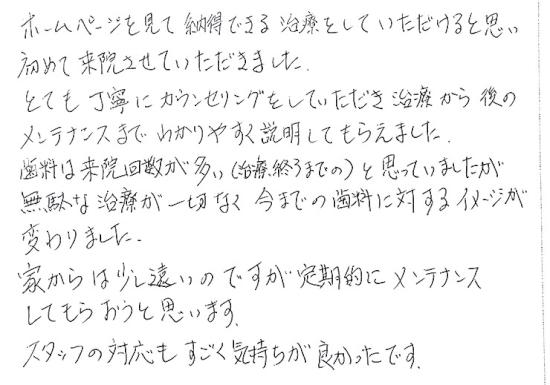 ホームページを見て 納得できる 治療をして いただけると思い
初めて 来院させていただきました.
とても 丁寧に カウンセリングをしていただき 治療から 後の
メンテナンスまで わかりやすく 説明してもらえました.
歯科は来院回数が多い(治療終るまでの)と思っていましたが
無駄な治療が一切なく 今までの歯科に対するイメージが
変わりました.
家からは少し遠いのですが 定期的に メンテナンス
してもらおうと思います.
スタッフの対応も すごく気持ちが 良かったです.